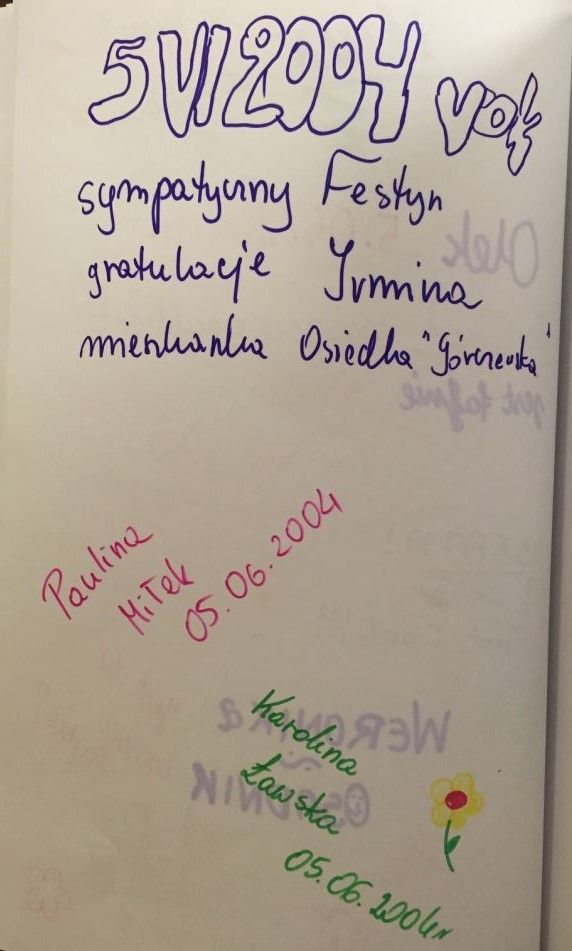 5 VI 2004 rok
sympatyczny Festyn
gratulacje Irmina
mieszkanka Osiedla "Górczewska"
Paulina
Miłek
05.06.2004
Karolina
Ławska
05.06.2004r
Olek
jest fajnie
WERONIKA